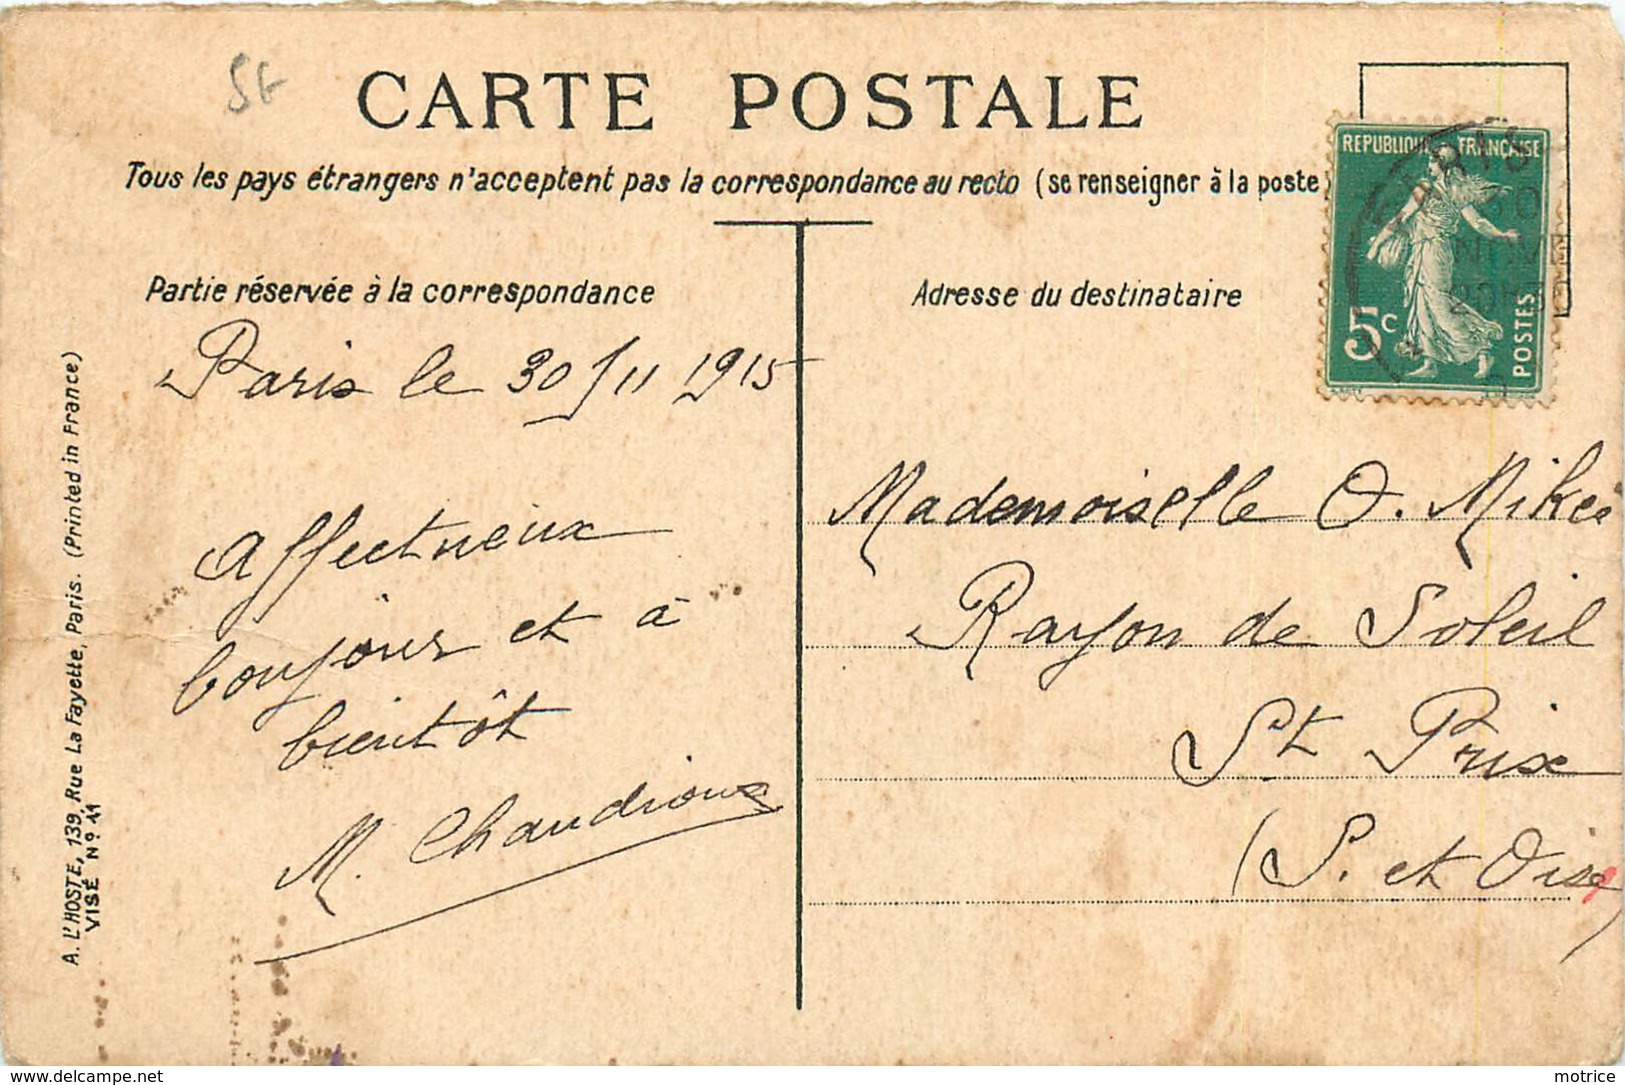 CARTE POSTALE
Tous les pays étrangers n'acceptent pas la correspondance au recto (se renseigner à la poste)
REPUBLIQUE FRANÇAISE
5c
POSTES
PARIS
30
Partie réservée à la correspondance
Adresse du destinataire
Paris le 30/11 1915
Affectueux
bonjour et à
bientôt
M. Chaudioux
Mademoiselle O. Mikée
Rayon de Soleil
St Prix
(S. et Oise)
A. L'HOSTE, 139, Rue La Fayette, Paris. (Printed in France)
VISÉ N° 11
www.delcampe.net
motrice